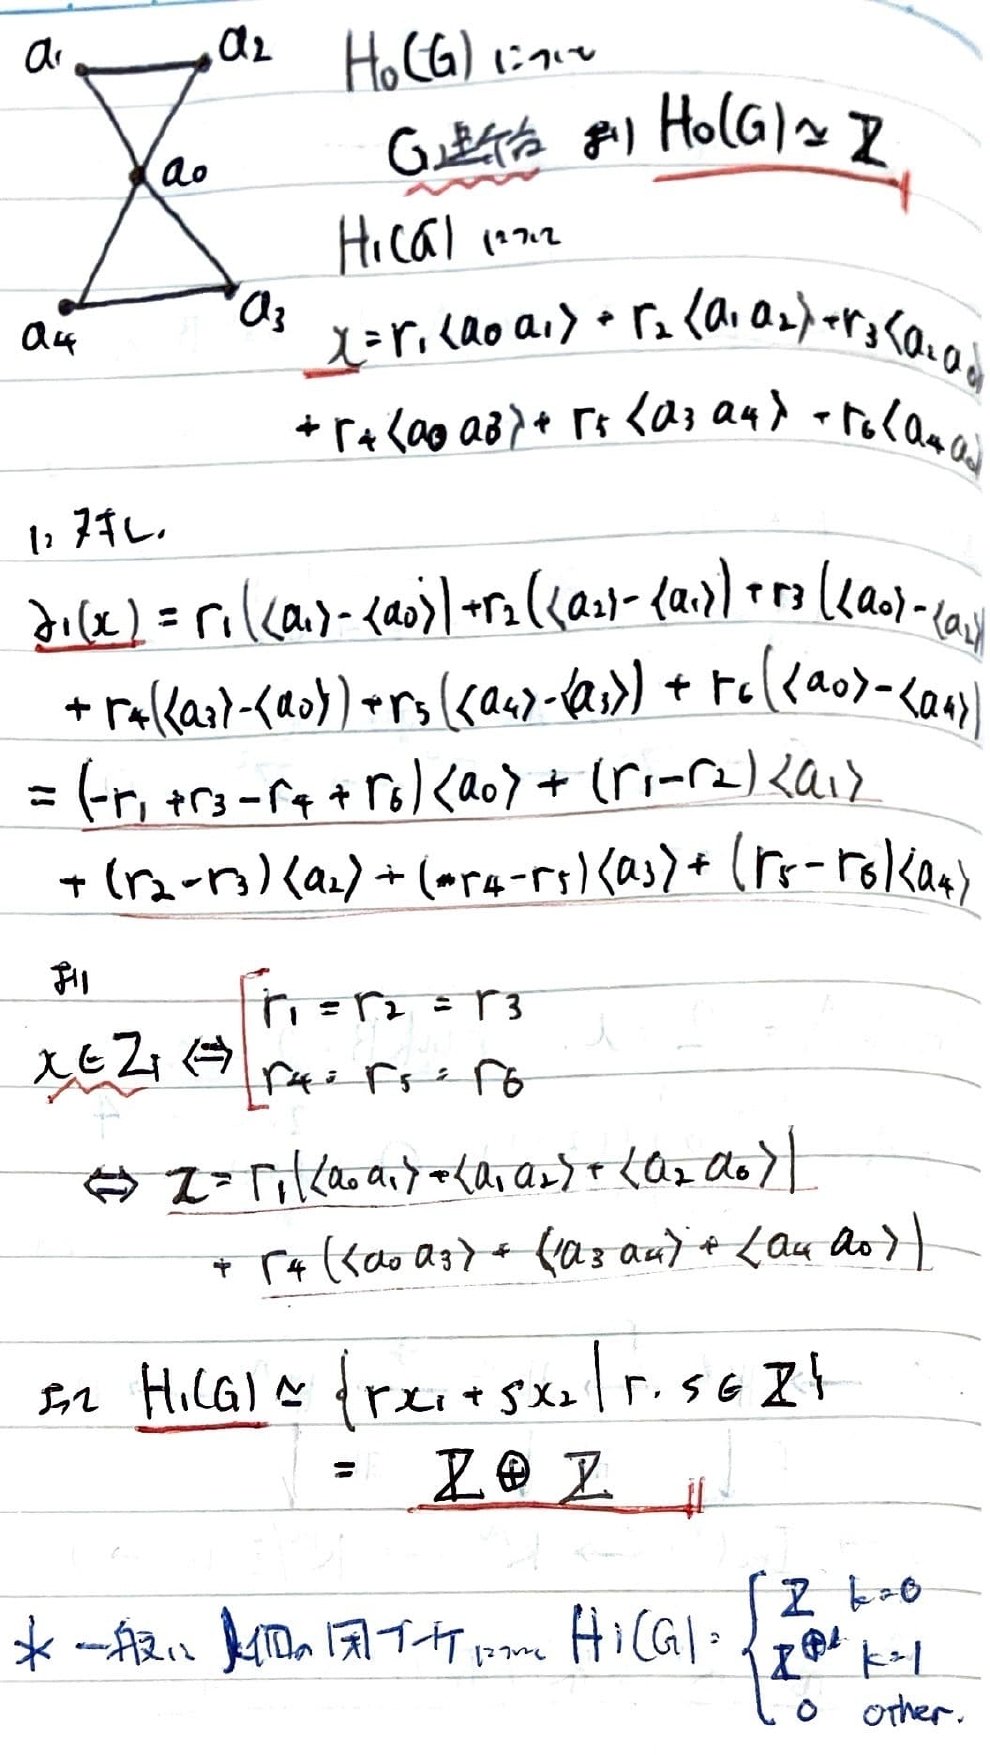 a₁ a₂ H₀(G) について
G連結 より H₀(G) ≃ ℤ
a₀
H₁(G) について
a₄ a₃
x = r₁⟨a₀a₁⟩ + r₂⟨a₁a₂⟩ + r₃⟨a₂a₀⟩
+ r₄⟨a₀a₃⟩ + r₅⟨a₃a₄⟩ + r₆⟨a₄a₀⟩
に対し.
∂₁(x) = r₁(⟨a₁⟩-⟨a₀⟩) + r₂(⟨a₂⟩-⟨a₁⟩) + r₃(⟨a₀⟩-⟨a₂⟩)
+ r₄(⟨a₃⟩-⟨a₀⟩) + r₅(⟨a₄⟩-⟨a₃⟩) + r₆(⟨a₀⟩-⟨a₄⟩)
= (-r₁+r₃-r₄+r₆)⟨a₀⟩ + (r₁-r₂)⟨a₁⟩
+ (r₂-r₃)⟨a₂⟩ + (r₄-r₅)⟨a₃⟩ + (r₅-r₆)⟨a₄⟩
より
x ∈ Z₁ ⇔ [r₁ = r₂ = r₃
r₄ = r₅ = r₆
⇔ x = r₁(⟨a₀a₁⟩+⟨a₁a₂⟩+⟨a₂a₀⟩)
+ r₄(⟨a₀a₃⟩+⟨a₃a₄⟩+⟨a₄a₀⟩)
よって H₁(G) ≃ {rx₁ + sx₂ | r, s ∈ ℤ}
= ℤ⊕ℤ
* 一般に l個の について Hi(G) = { ℤ k=0
ℤ^⊕l k=1
0 other.